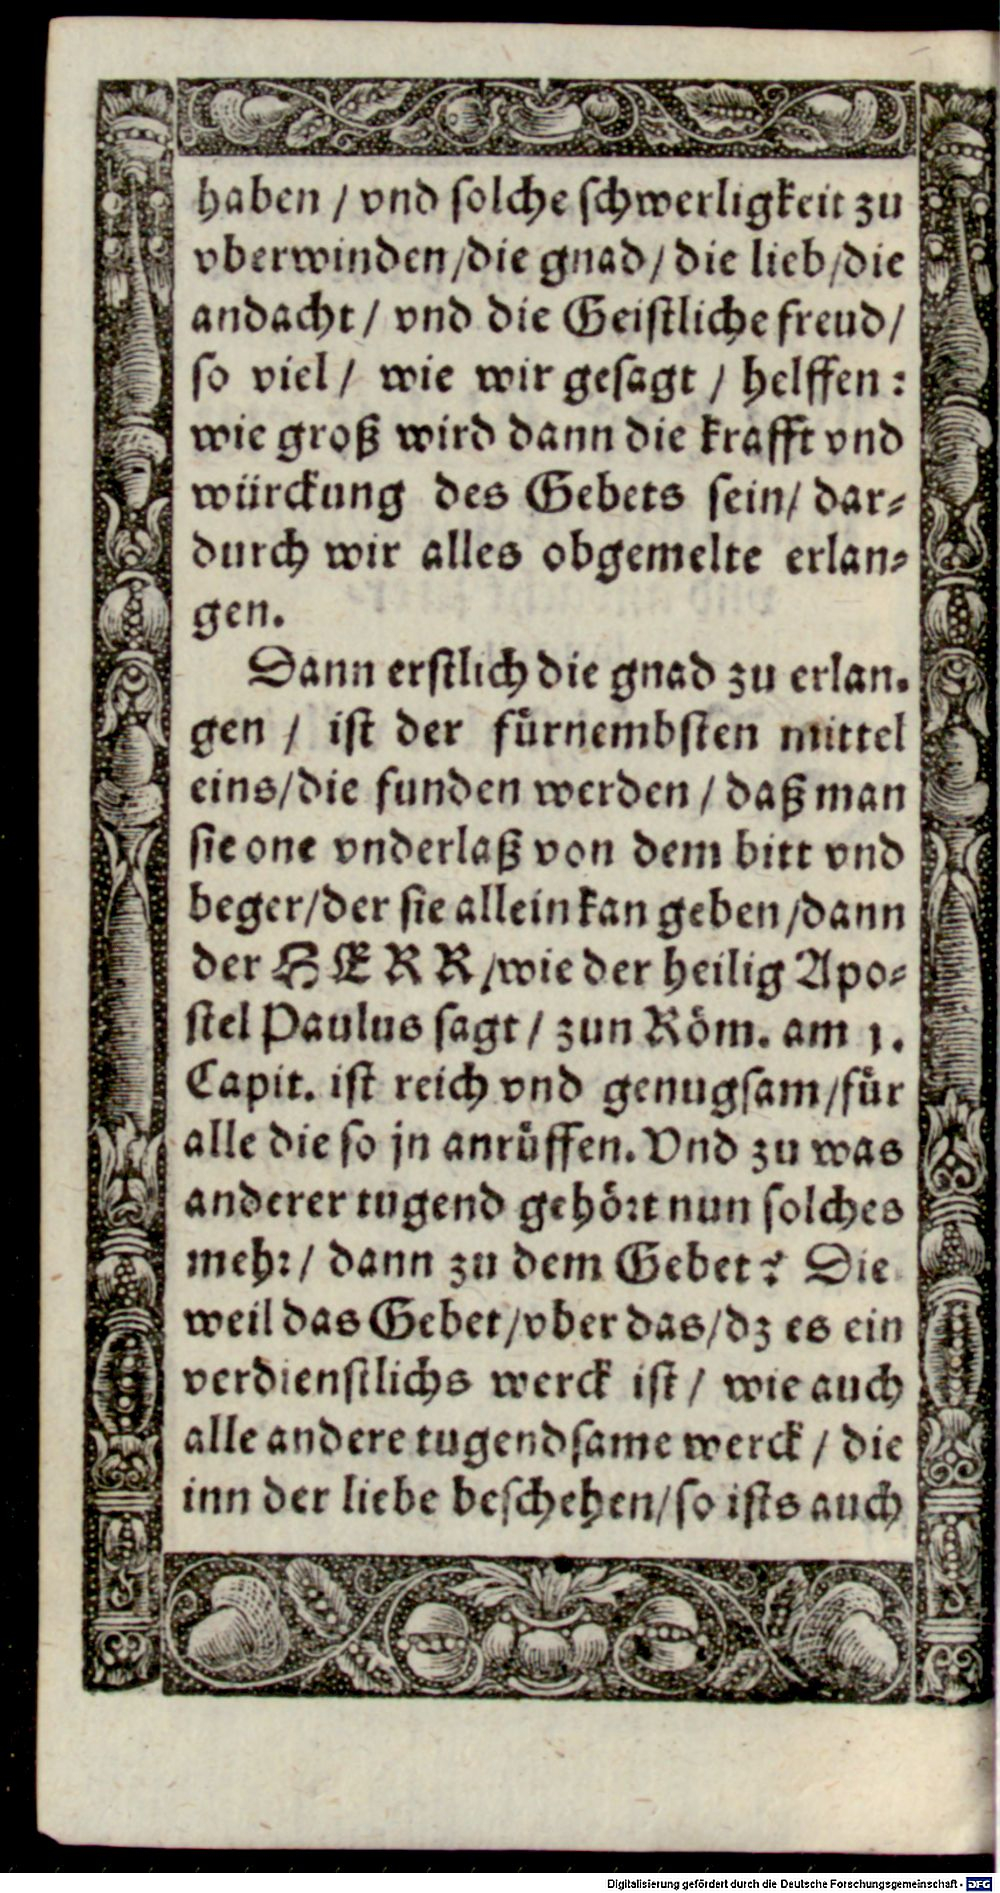 haben / vnd ſolche ſchwerligkeit zu
vberwinden / die gnad / die lieb / die
andacht / vnd die Geiſtliche freud /
ſo viel / wie wir geſagt / helffen:
wie groß wird dann die krafft vnd
würckung des Gebets ſein / dar⸗
durch wir alles obgemelte erlan⸗
gen.
Dann erſtlich die gnad zu erlan.
gen / iſt der fürnembſten mittel
eins / die funden werden / daß man
ſie one vnderlaß von dem bitt vnd
beger / der ſie allein kan geben / dann
der HERR / wie der heilig Apo⸗
ſtel Paulus ſagt / zun Röm. am 1.
Capit. iſt reich vnd genugſam / für
alle die ſo jn anrüffen. Vnd zu was
anderer tugend gehört nun ſolches
mehr / dann zu dem Gebet? Die
weil das Gebet / vber das / dz es ein
verdienſtlichs werck iſt / wie auch
alle andere tugendſame werck / die
inn der liebe beſchehen / ſo iſts auch
Digitalisierung gefördert durch die Deutsche Forschungsgemeinschaft - DFG